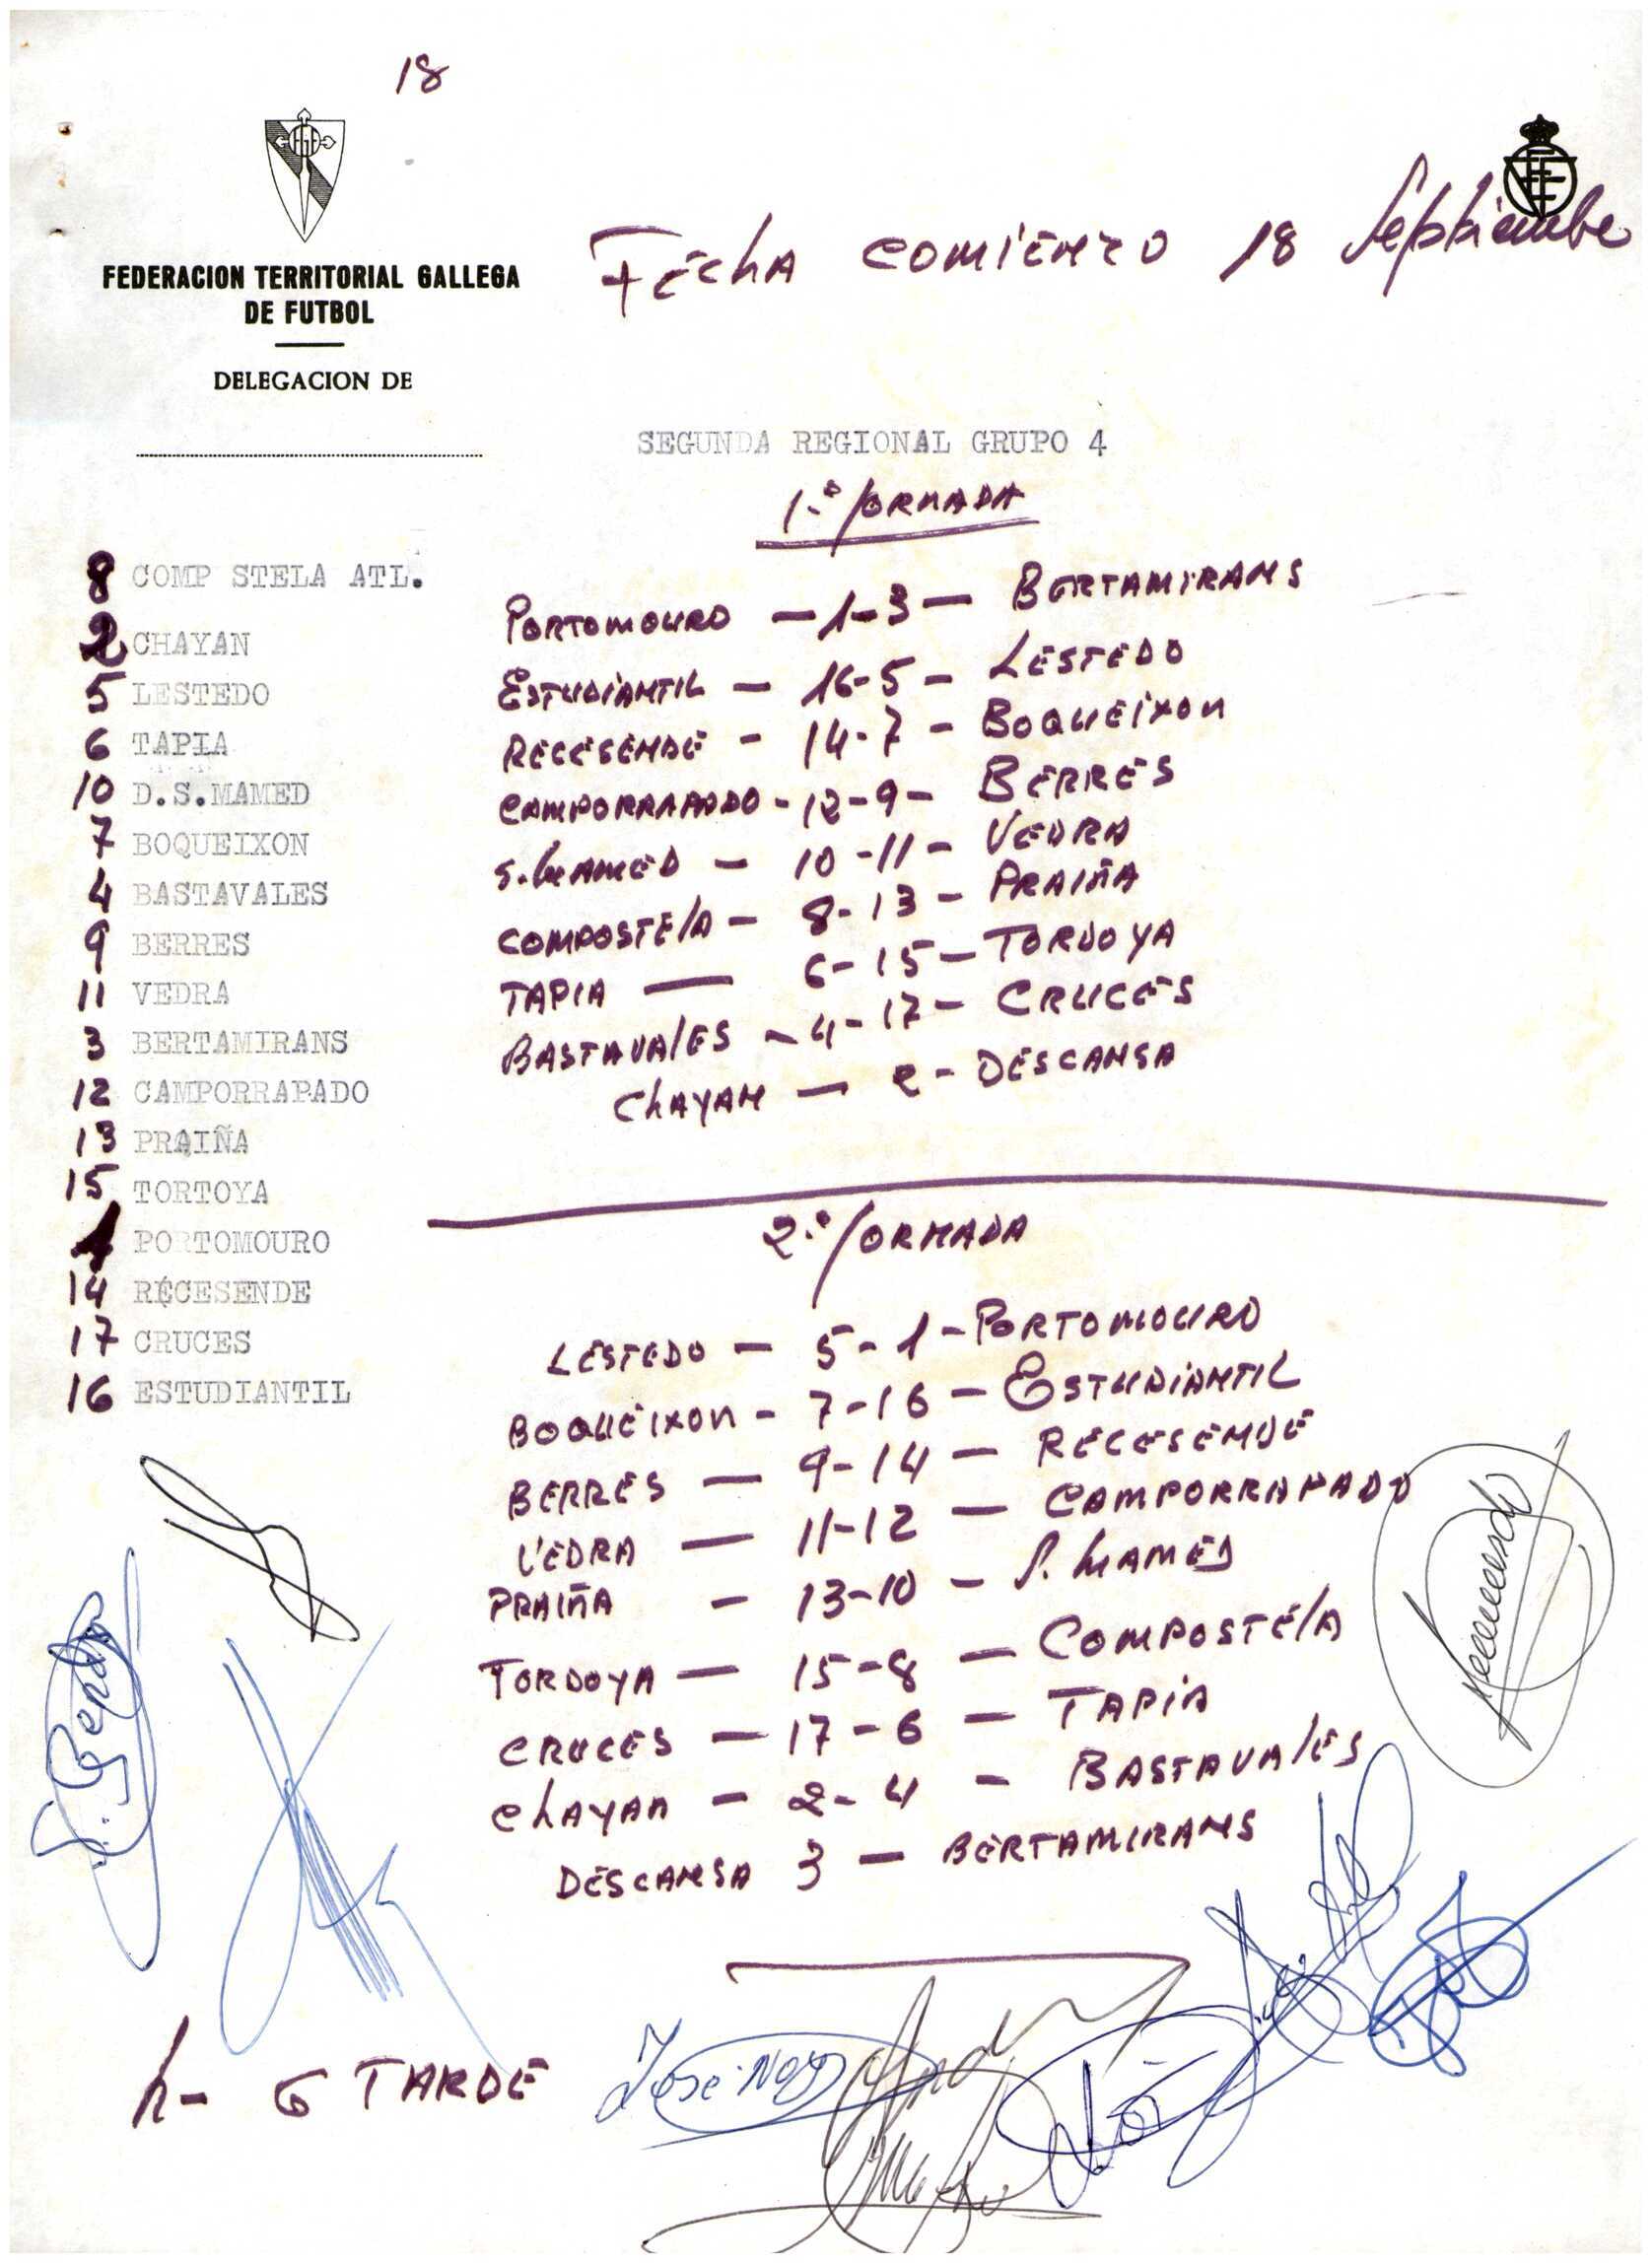 18
FEDERACION TERRITORIAL GALLEGA
DE FUTBOL
DELEGACION DE
FECHA COMIENZO 18 Septiembre
SEGUNDA REGIONAL GRUPO 4
1.ª JORNADA
8 COMP STELA ATL.
2 CHAYAN
5 LESTEDO
6 TAPIA
10 D.S.MAMED
7 BOQUEIXON
4 BASTAVALES
9 BERRES
11 VEDRA
3 BERTAMIRANS
12 CAMPORRAPADO
13 PRAIÑA
15 TORTOYA
1 PORTOMOURO
14 RECESENDE
17 CRUCES
16 ESTUDIANTIL
PORTOMOURO - 1-3 - BERTAMIRANS
ESTUDIANTIL - 16-5 - LESTEDO
RECESENDE - 14-7 - BOQUEIXON
CAMPORRAPADO - 12-9 - BERRES
S. MAMED - 10-11 - VEDRA
COMPOSTELA - 8-13 - PRAIÑA
TAPIA - 6-15 - TORDOYA
BASTAVALES - 4-17 - CRUCES
CHAYAN - 2 - DESCANSA
2.ª JORNADA
LESTEDO - 5-1 - PORTOMOURO
BOQUEIXON - 7-16 - ESTUDIANTIL
BERRES - 9-14 - RECESENDE
VEDRA - 11-12 - CAMPORRAPADO
PRAIÑA - 13-10 - S. MAMED
TORDOYA - 15-8 - COMPOSTELA
CRUCES - 17-6 - TAPIA
CHAYAN - 2-4 - BASTAVALES
DESCANSA 3 - BERTAMIRANS
h- 6 TARDE
José